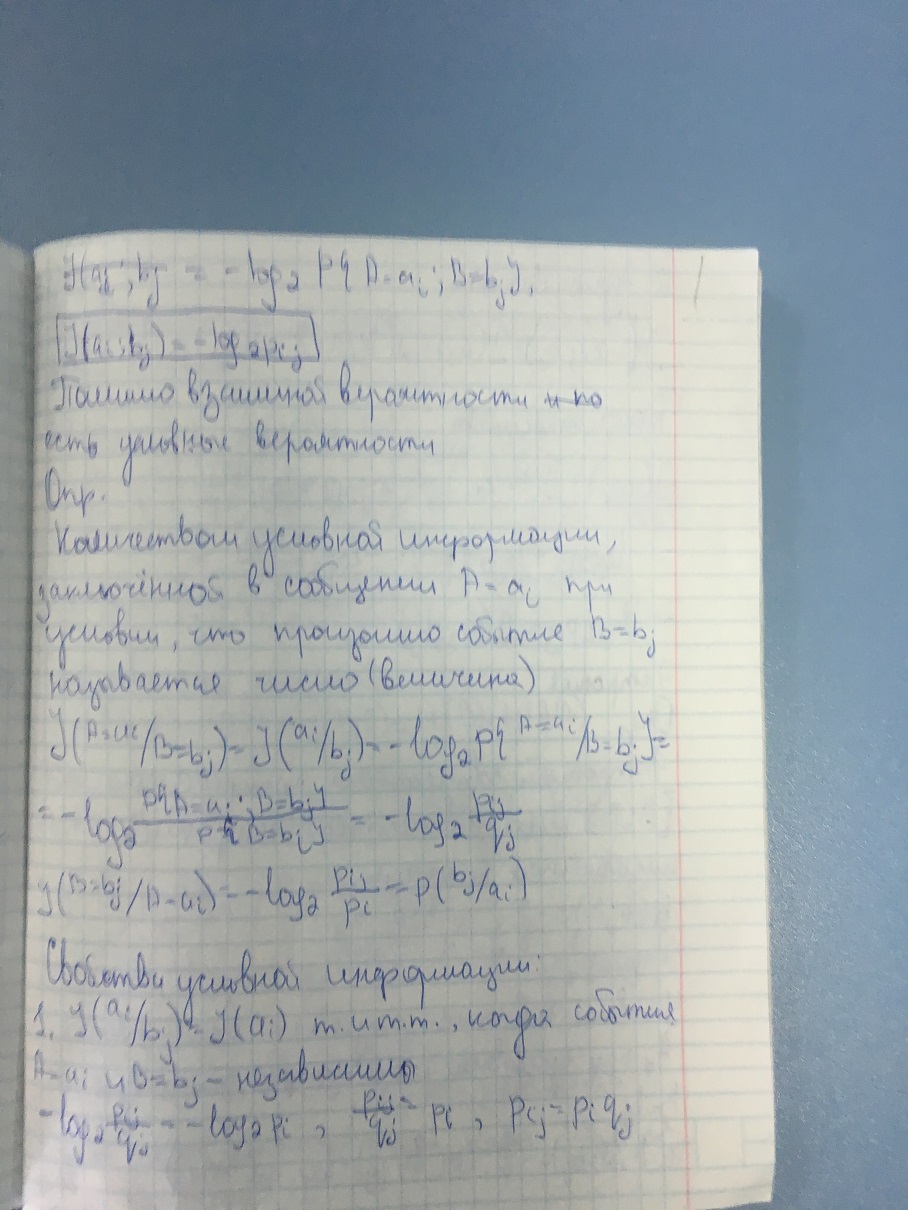 J(ai; bj = -log2 P{A=ai; B=bj},
J(ai; bj) = -log2 pij
Помимо взаимной вероятности и по
есть условные вероятности
Опр.
Количеством условной информации,
заключённой в сообщении A=ai при
условии, что произошло событие B=bj
называется число (величина)
J(A=ai/B=bj) = J(ai/bj) = -log2 P{A=ai/B=bj} =
= -log2 P{A=ai; B=bj}/P{B=bj} = -log2 pij/qj
J(B=bj/A=ai) = -log2 pij/pi = P(bj/ai)
Свойства условной информации:
1. J(ai/bj) = J(ai) т.и т.т., когда события
A=ai и B=bj – независимы
-log2 pij/qj = -log2 pi, pij/qj = pi, pij = pi qj